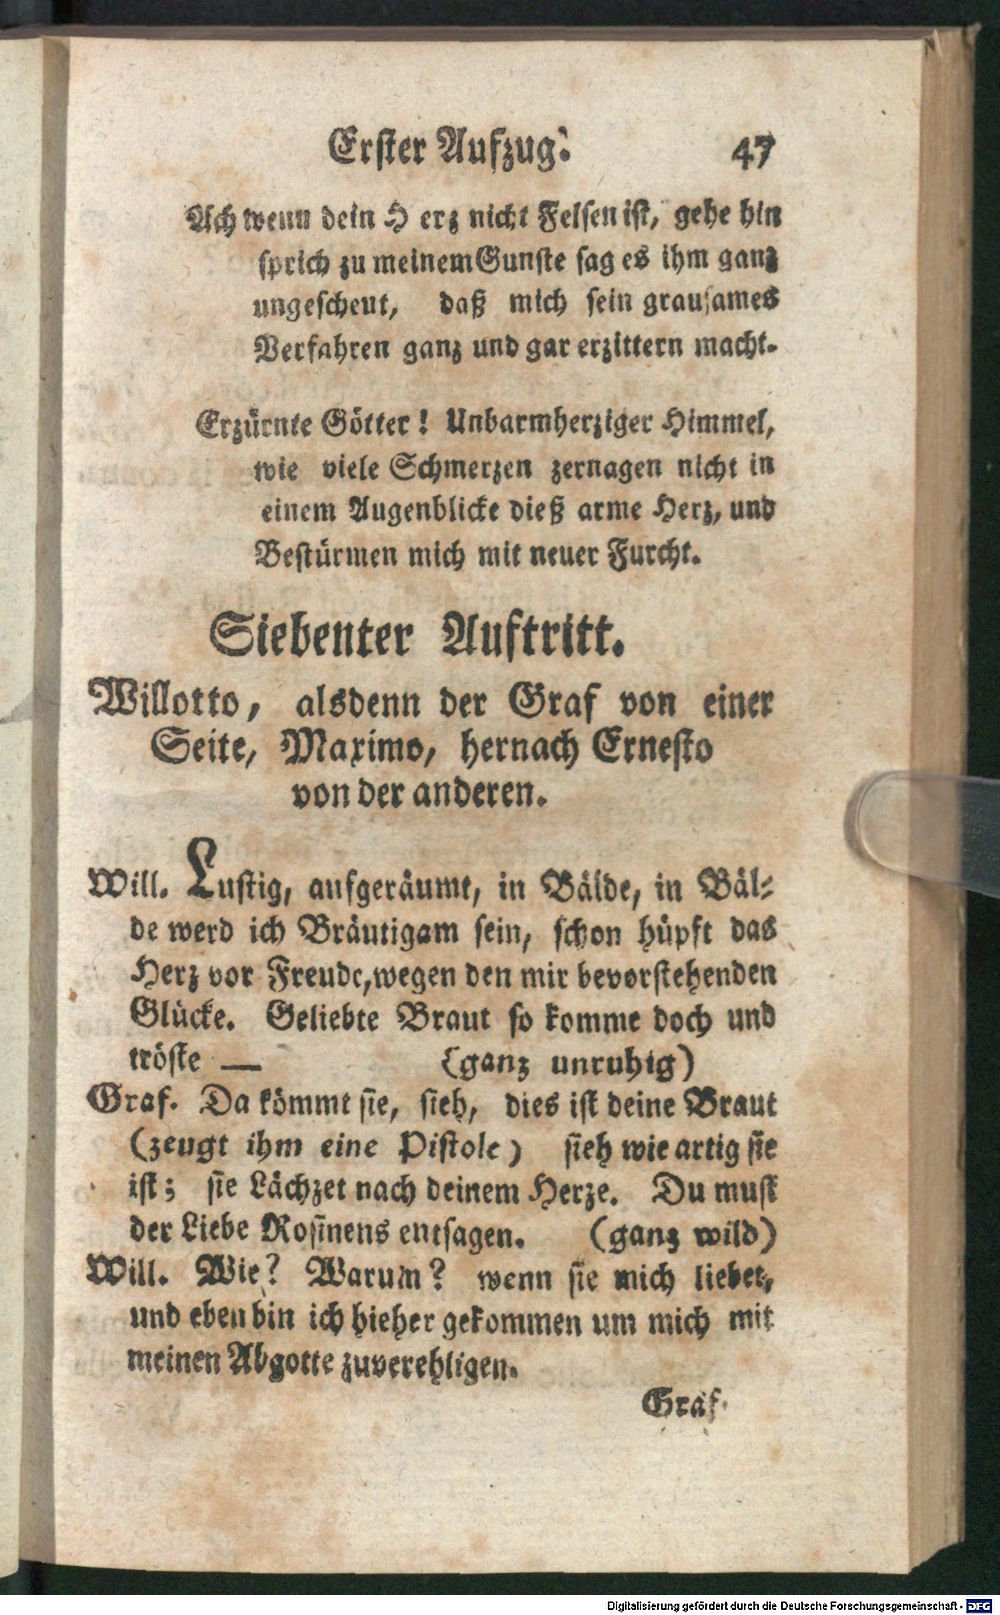 Erster Aufzug. 47
Ach wenn dein Herz nicht Felsen ist, gehe hin
sprich zu meinem Gunste sag es ihm ganz
ungescheut, daß mich sein grausames
Verfahren ganz und gar erzittern macht.
Erzürnte Götter! Unbarmherziger Himmel,
wie viele Schmerzen zernagen nicht in
einem Augenblicke dieß arme Herz, und
Bestürmen mich mit neuer Furcht.
Siebenter Auftritt.
Willotto, alsdenn der Graf von einer
Seite, Maximo, hernach Ernesto
von der anderen.
Will. Lustig, aufgeräumt, in Bälde, in Bäl-
de werd ich Bräutigam sein, schon hüpft das
Herz vor Freude, wegen den mir bevorstehenden
Glücke. Geliebte Braut so komme doch und
tröste — (ganz unruhig)
Graf. Da kömmt sie, sieh, dies ist deine Braut
(zeugt ihm eine Pistole) sieh wie artig sie
ist; sie Lächzet nach deinem Herze. Du must
der Liebe Rosinens entsagen. (ganz wild)
Will. Wie? Warum? wenn sie mich liebet,
und eben bin ich hieher gekommen um mich mit
meinen Abgotte zuverehligen.
Graf.
Digitalisierung gefördert durch die Deutsche Forschungsgemeinschaft - DFG